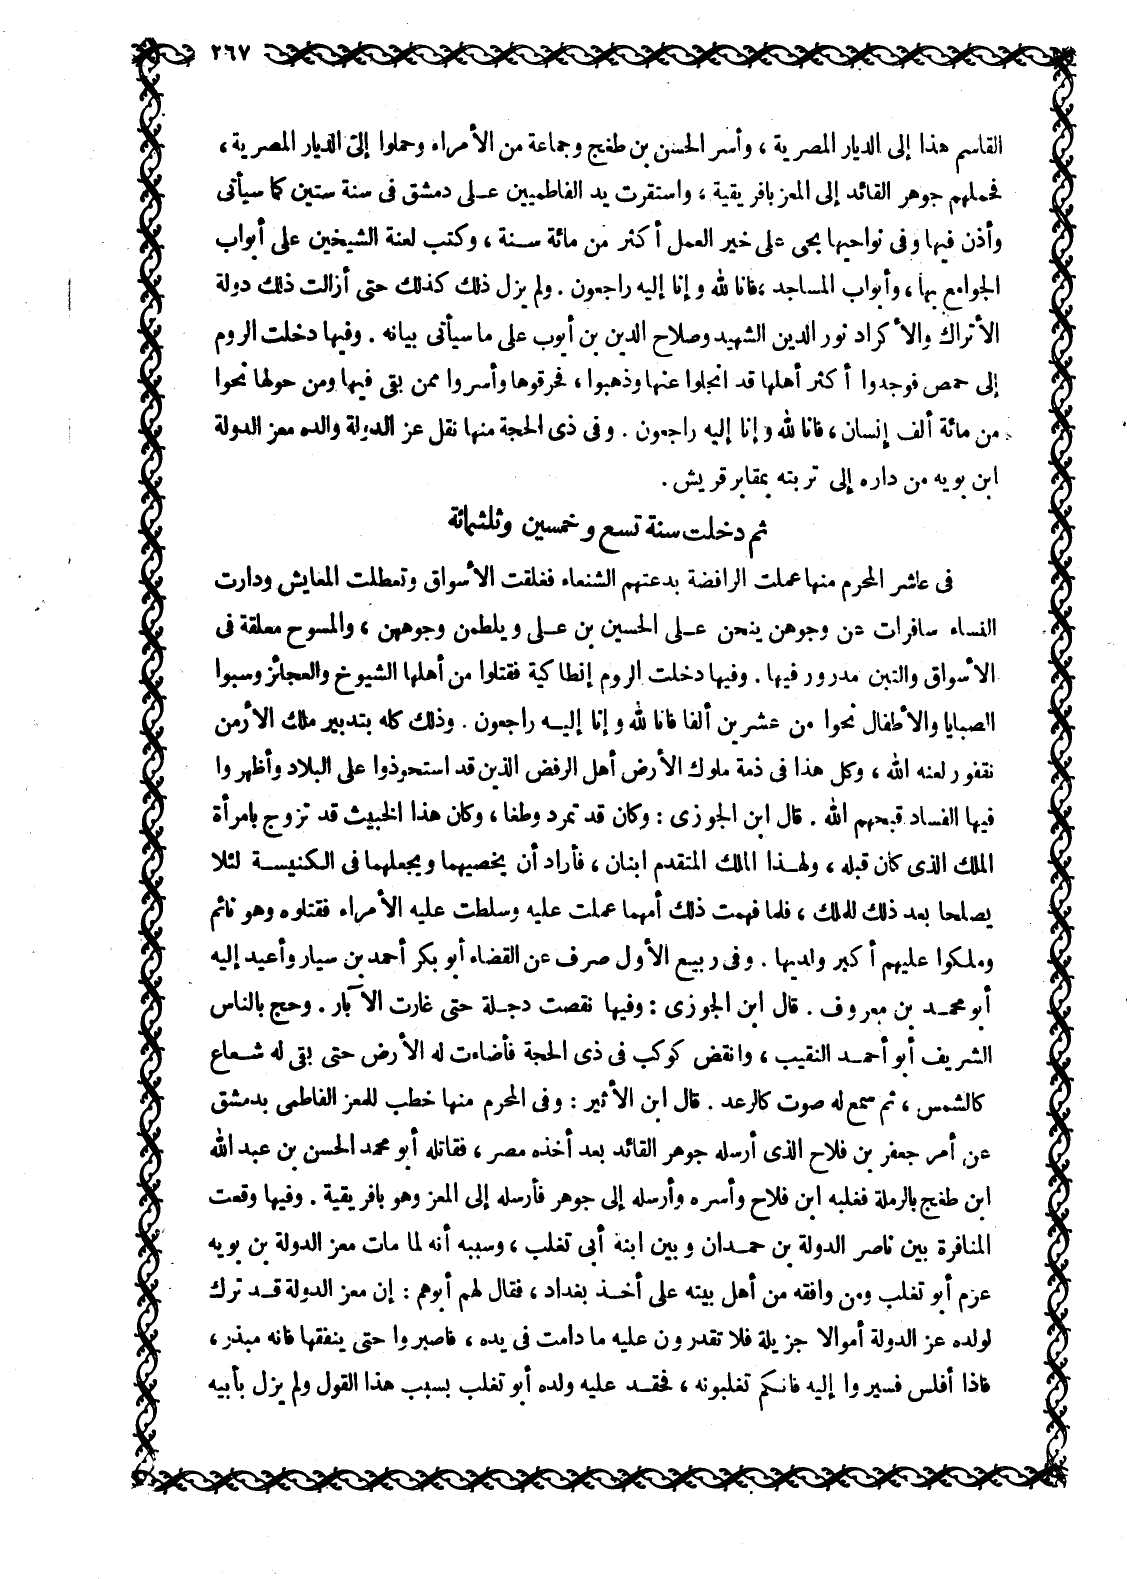 ٢٦٧
القاسم هذا إلى الديار المصرية ، وأسر الحسن بن طغج وجماعة من الأمراء وحملوا إلى الديار المصرية ،
فحملهم جوهر القائد إلى المعز بافريقية ، واستقرت يد الفاطميين على دمشق فى سنة ستين كما سيأتى
وأذن فيها وفى نواحيها بحى على خير العمل أكثر من مائة سنة ، وكتب لعنة الشيخين على أبواب
الجوامع بها ، وأبواب المساجد ، فانا لله وإنا إليه راجعون . ولم يزل ذلك كذلك حتى أزالت ذلك دولة
الأتراك والأكراد نور الدين الشهيد وصلاح الدين بن أيوب على ما سيأتى بيانه . وفيها دخلت الروم
إلى حمص فوجدوا أكثر أهلها قد انجلوا عنها وذهبوا ، فحرقوها وأسروا ممن بقى فيها ومن حولها نحوا
من مائة ألف إنسان ، فانا لله وإنا إليه راجعون . وفى ذى الحجة منها نقل عز الدولة والده معز الدولة
ابن بويه من داره إلى تربته بمقابر قريش .
ثم دخلت سنة تسع وخمسين وثلثمائة
فى عاشر المحرم منها عملت الرافضة بدعتهم الشنعاء فغلقت الأسواق وتعطلت المعايش ودارت
النساء سافرات عن وجوهن ينحن على الحسين بن على ويلطمن وجوههن ، والمسوح معلقة فى
الأسواق والتبن مدرور فيها . وفيها دخلت الروم إنطاكية فقتلوا من أهلها الشيوخ والعجائز وسبوا
الصبايا والأطفال نحوا من عشرين ألفا فانا لله وإنا إليه راجعون . وذلك كله بتدبير ملك الأرمن
نقفور لعنه الله ، وكل هذا فى ذمة ملوك الأرض أهل الرفض الذين قد استحوذوا على البلاد وأظهروا
فيها الفساد قبحهم الله . قال ابن الجوزى : وكان قد تمرد وطغا ، وكان هذا الخبيث قد تزوج بامرأة
الملك الذى كان قبله ، ولهذا الملك المتقدم ابنان ، فأراد أن يخصيهما ويجعلهما فى الكنيسة لئلا
يصلحا بعد ذلك للملك ، فلما فهمت ذلك أمهما عملت عليه وسلطت عليه الأمراء فقتلوه وهو نائم
وملكوا عليهم أكبر ولديها . وفى ربيع الأول صرف عن القضاء أبو بكر أحمد بن سيار وأعيد إليه
أبو محمد بن معروف . قال ابن الجوزى : وفيها نقصت دجلة حتى غارت الآبار . وحج بالناس
الشريف أبو أحمد النقيب ، وانقض كوكب فى ذى الحجة فأضاءت له الأرض حتى بقى له شعاع
كالشمس ، ثم سمع له صوت كالرعد . قال ابن الأثير : وفى المحرم منها خطب للمعز الفاطمى بدمشق
عن أمر جعفر بن فلاح الذى أرسله جوهر القائد بعد أخذه مصر ، فقاتله أبو محمد الحسن بن عبد الله
ابن طغج بالرملة فغلبه ابن فلاح وأسره وأرسله إلى جوهر فأرسله إلى المعز وهو بافريقية . وفيها وقعت
المنافرة بين ناصر الدولة بن حمدان وبين ابنة أبى تغلب ، وسببه أنه لما مات معز الدولة بن بويه
عزم أبو تغلب ومن وافقه من أهل بيته على أخذ بغداد ، فقال لهم أبوهم : إن معز الدولة قد ترك
لولده عز الدولة أموالا جزيلة فلا تقدرون عليه ما دامت فى يده ، فاصبروا حتى ينفقها فانه مبذر ،
فاذا أفلس فسيروا إليه فانكم تغلبونه ، فحقد عليه ولده أبو تغلب بسبب هذا القول ولم يزل بأبيه